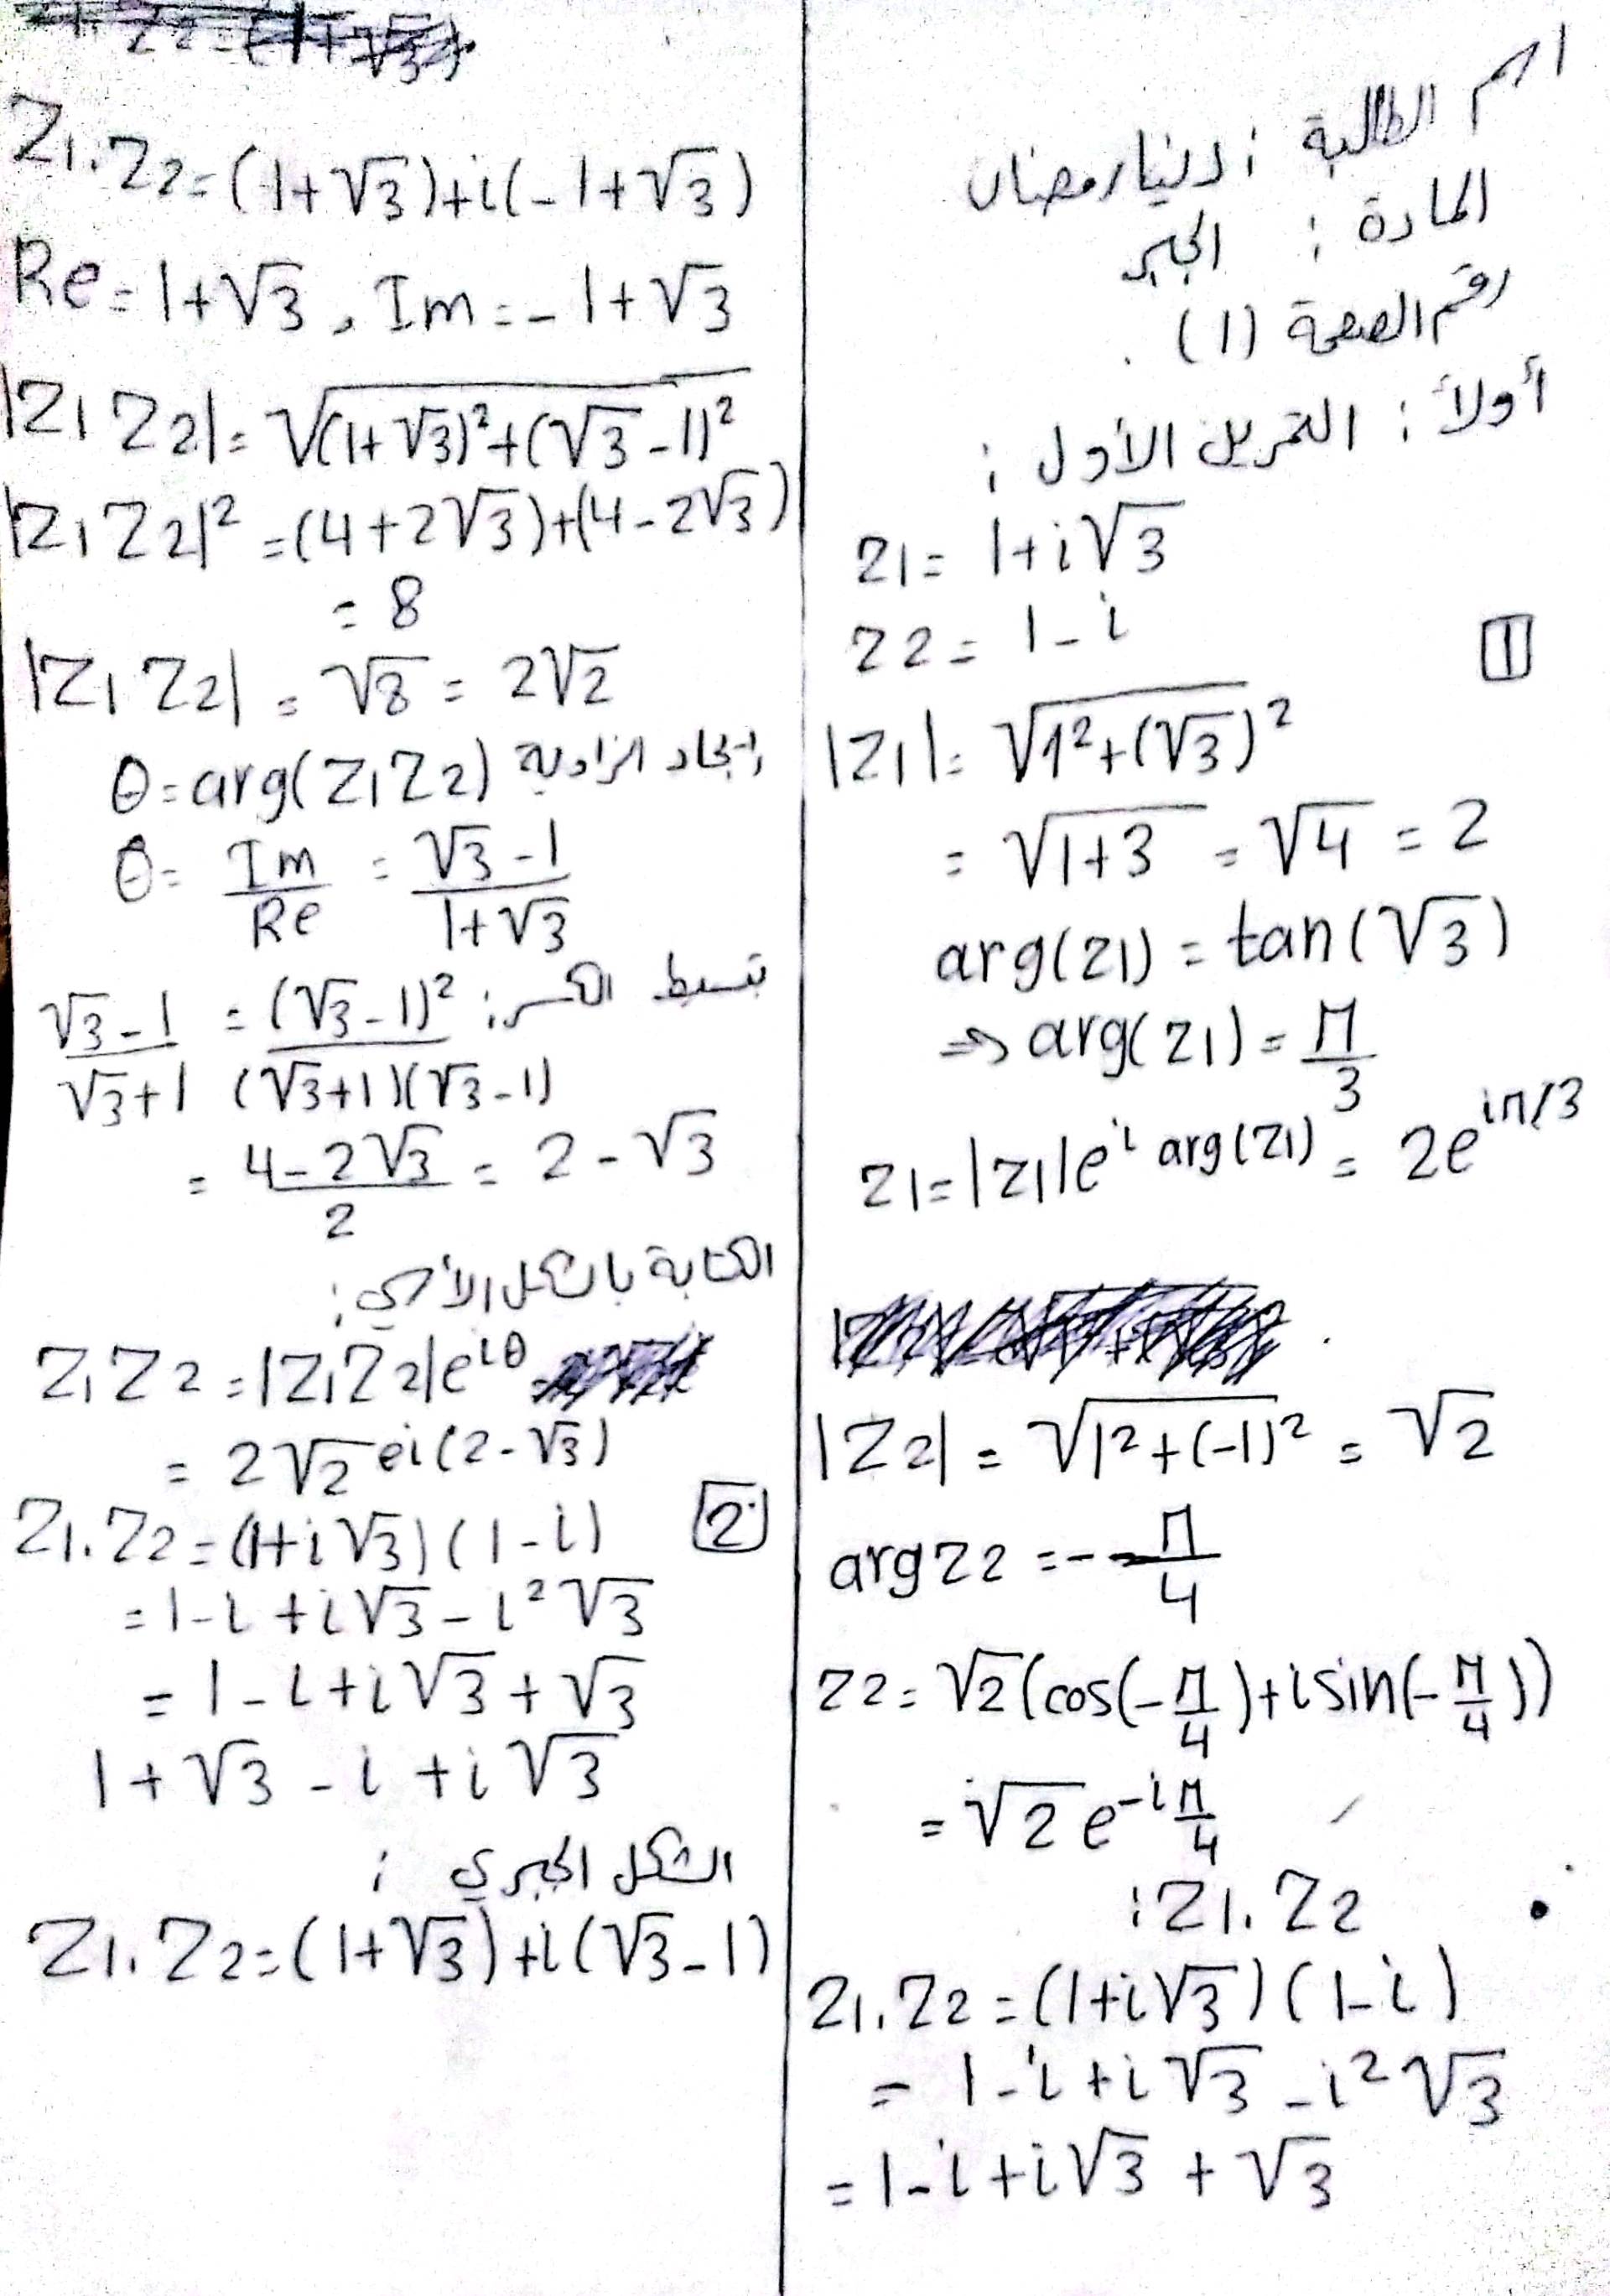 اسم الطالبة : دنيا رمضان
المادة : الجبر
رقم الصفحة (1) .
أولاً : التمرين الأول :
z1 = 1+i√3
z2 = 1-i
1
|z1| = √(1²+(√3)²)
= √(1+3) = √4 = 2
arg(z1) = tan(√3)
⇒ arg(z1) = π/3
z1 = |z1|e^(i arg(z1)) = 2e^(iπ/3)
|Z2| = √(1²+(-1)²) = √2
arg z2 = -π/4
z2 = √2(cos(-π/4)+i sin(-π/4))
= √2 e^(-iπ/4)
• Z1.Z2 :
Z1.Z2 = (1+i√3)(1-i)
= 1-i+i√3-i²√3
= 1-i+i√3+√3
Z1.Z2 = (1+√3)+i(-1+√3)
Re = 1+√3 , Im = -1+√3
|Z1Z2| = √((1+√3)²+(√3-1)²)
|Z1Z2|² = (4+2√3)+(4-2√3)
= 8
|Z1Z2| = √8 = 2√2
إيجاد الزاوية θ = arg(Z1Z2)
θ = Im/Re = (√3-1)/(1+√3)
تبسيط الكسر :
(√3-1)/(√3+1) = (√3-1)²/((√3+1)(√3-1))
= (4-2√3)/2 = 2-√3
الكتابة بالشكل الأسي :
Z1Z2 = |Z1Z2|e^(iθ)
= 2√2 e^(i(2-√3))
2
Z1.Z2 = (1+i√3)(1-i)
= 1-i+i√3-i²√3
= 1-i+i√3+√3
1+√3-i+i√3
الشكل الجبري :
Z1.Z2 = (1+√3)+i(√3-1)